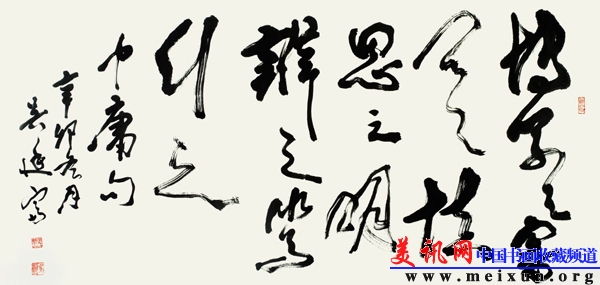 博学之審
问之慎
思之明
辨之篤
行之
中庸句
辛卯 月
写
美讯网 中国书画收藏频道
www.meixun.org